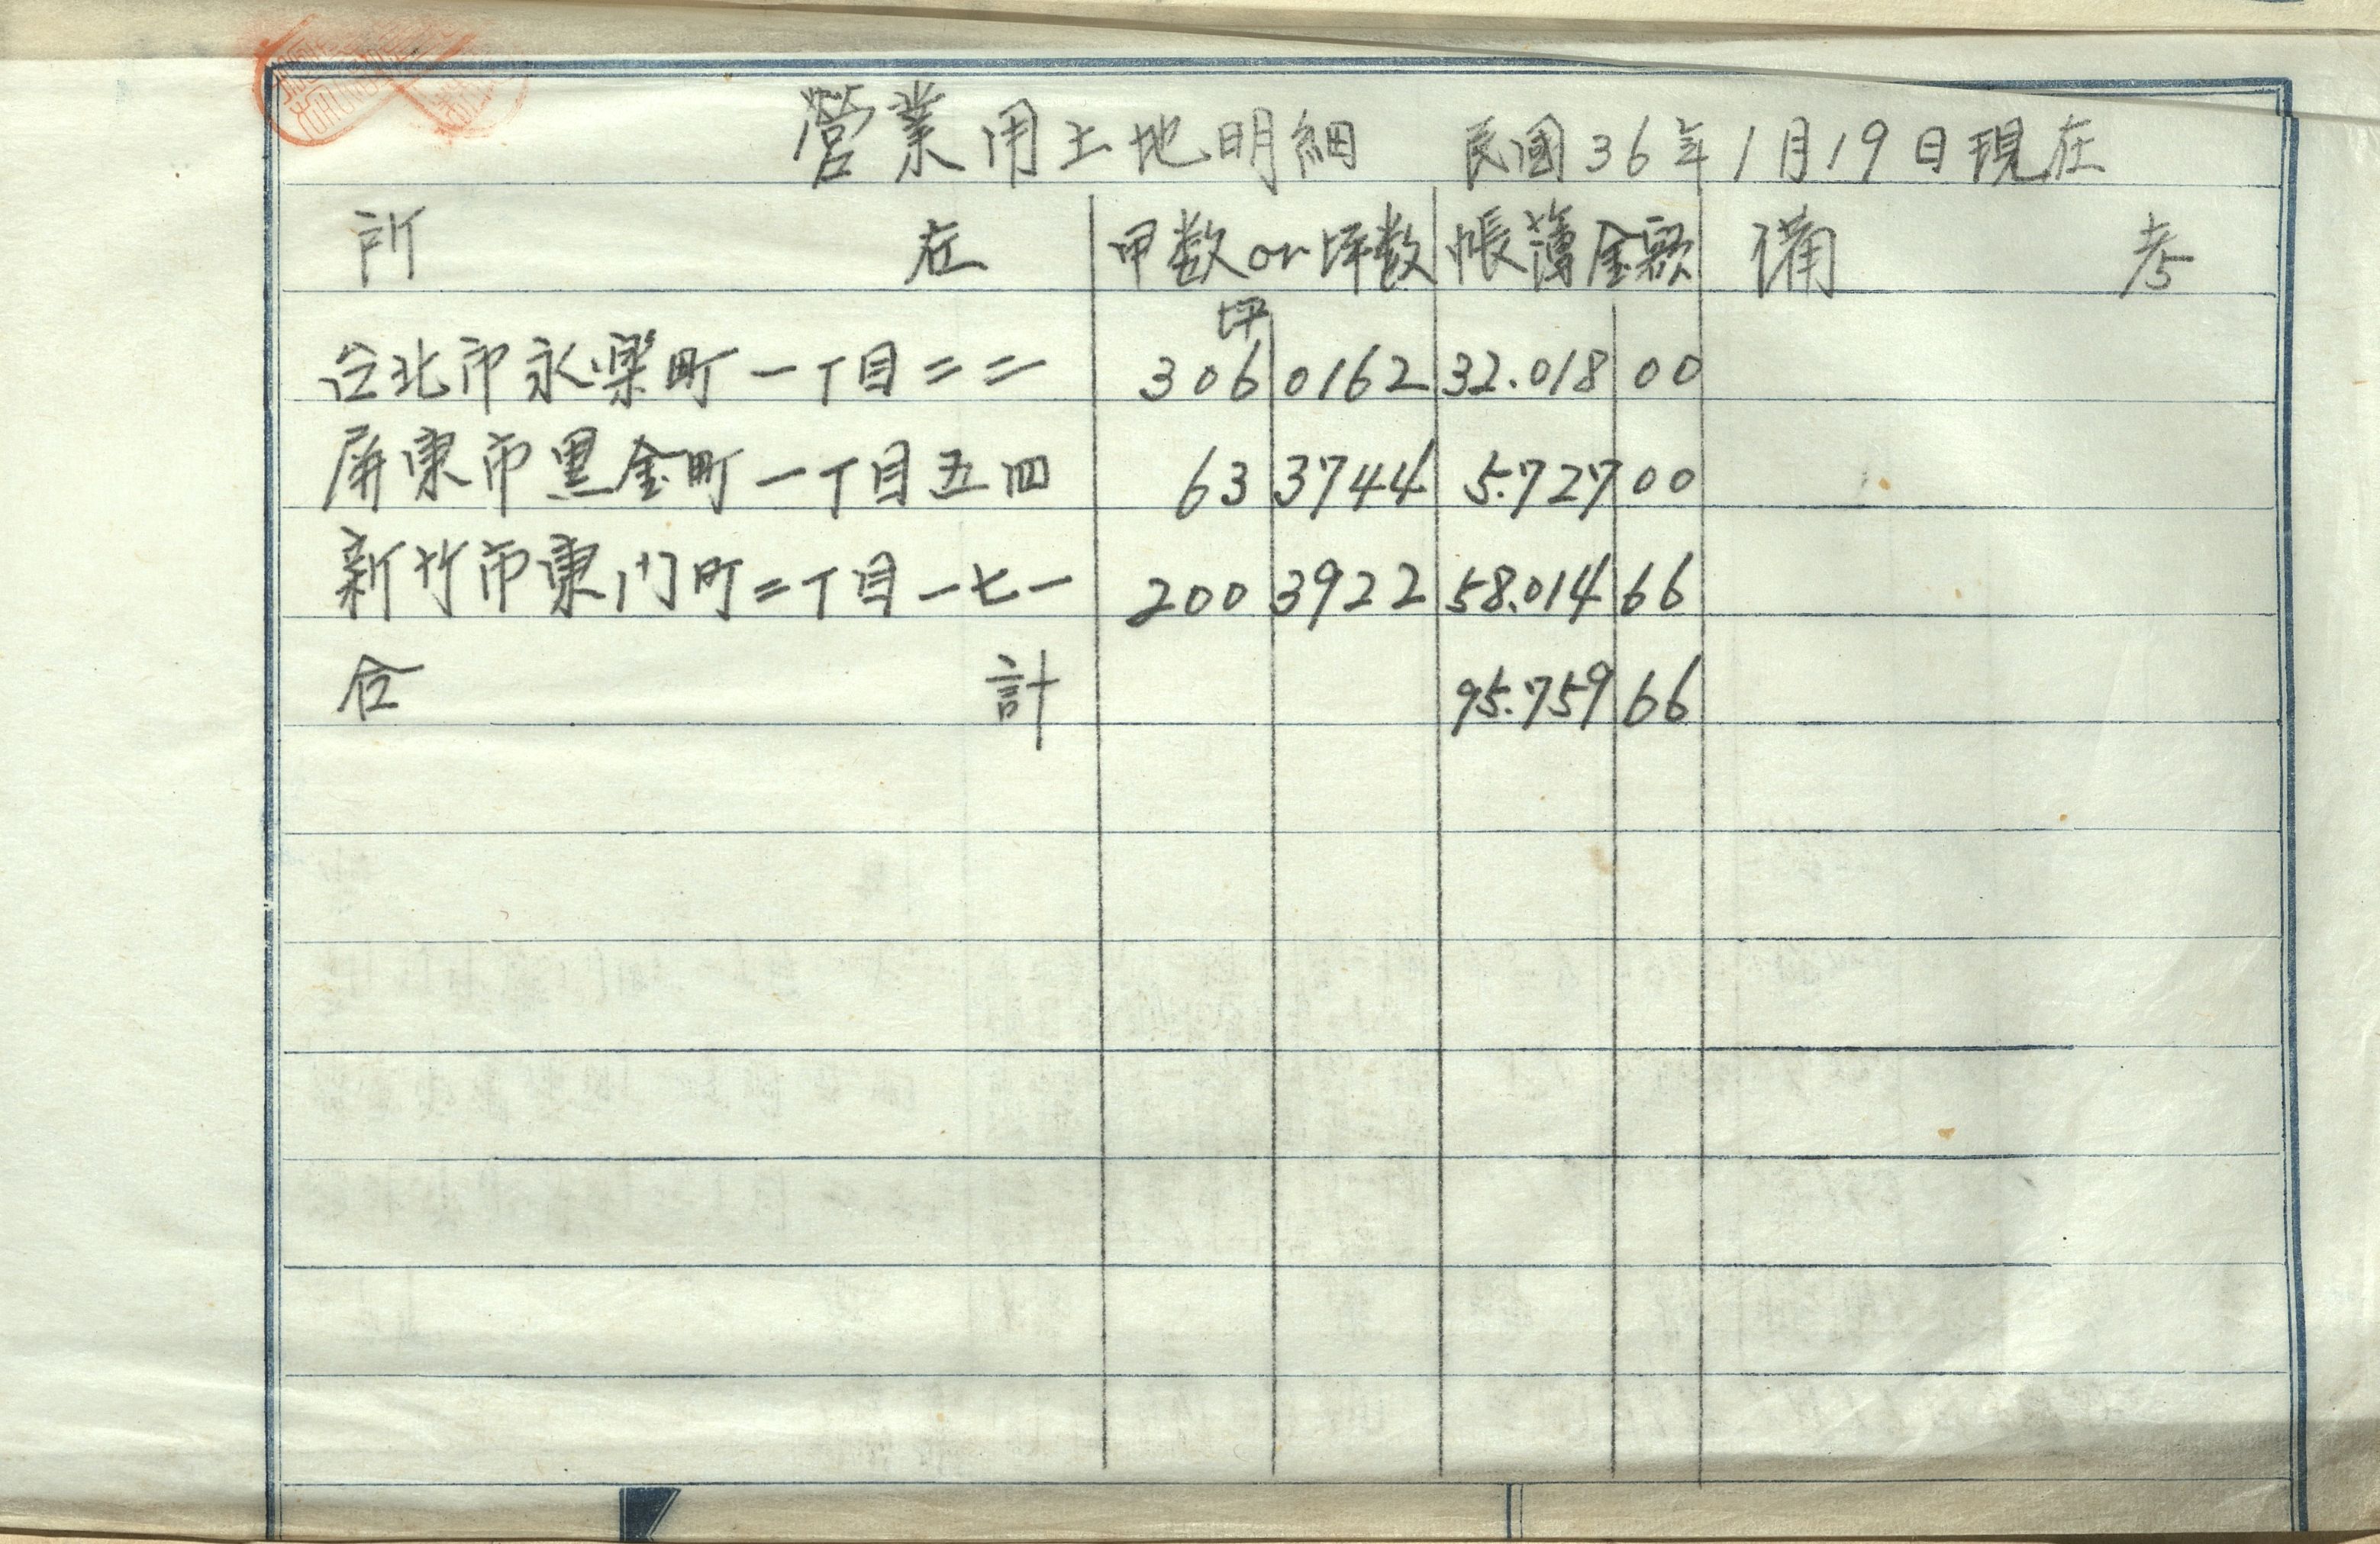 營業用土地明細 民國36年1月19日現在
所在 甲数or坪数 帳簿金額 備考
坪
台北市永楽町一丁目二二 306 0162 32.018 00
屏東市黒金町一丁目五四 63 3744 5.727 00
新竹市東门町二丁目一七一 200 3922 58.014 66
合計 95.759 66